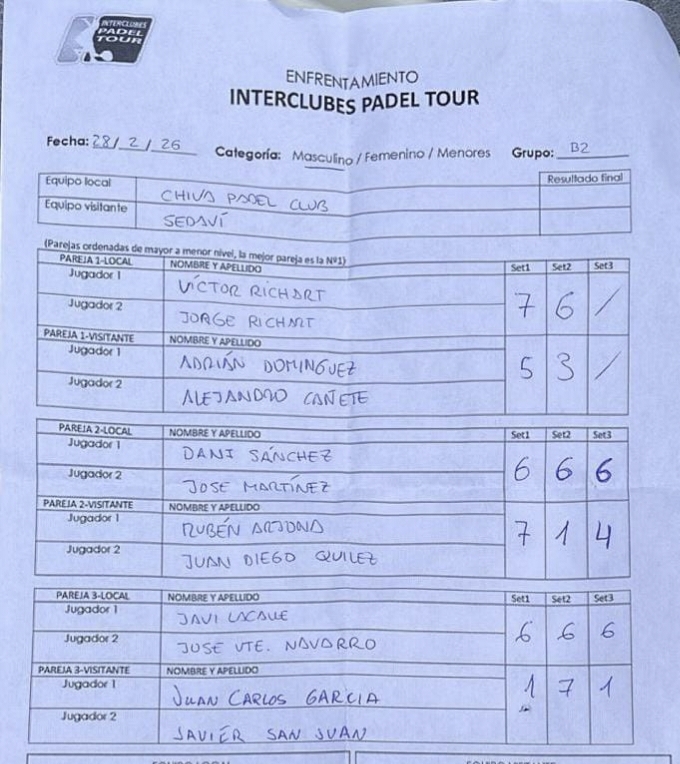 INTERCLUBES
PADEL
TOUR
ENFRENTAMIENTO
INTERCLUBES PADEL TOUR
Fecha: 28/2/26 Categoría: Masculino / Femenino / Menores Grupo: B2
Equipo local CHIVA PADEL CLUB Resultado final
Equipo visitante SEDAVÍ
(Parejas ordenadas de mayor a menor nivel, la mejor pareja es la Nº1)
PAREJA 1-LOCAL NOMBRE Y APELLIDO Set1 Set2 Set3
Jugador 1 VÍCTOR RICHART 7 6 /
Jugador 2 JORGE RICHART
PAREJA 1-VISITANTE NOMBRE Y APELLIDO
Jugador 1 ADRIÁN DOMINGUEZ 5 3 /
Jugador 2 ALEJANDRO CAÑETE
PAREJA 2-LOCAL NOMBRE Y APELLIDO Set1 Set2 Set3
Jugador 1 DANI SÁNCHEZ 6 6 6
Jugador 2 JOSE MARTÍNEZ
PAREJA 2-VISITANTE NOMBRE Y APELLIDO
Jugador 1 RUBÉN ARJONA 7 1 4
Jugador 2 JUAN DIEGO QUILEZ
PAREJA 3-LOCAL NOMBRE Y APELLIDO Set1 Set2 Set3
Jugador 1 JAVI LACALLE 6 6 6
Jugador 2 JOSE VTE. NAVARRO
PAREJA 3-VISITANTE NOMBRE Y APELLIDO
Jugador 1 JUAN CARLOS GARCIA 1 7 1
Jugador 2 JAVIER SAN JUAN